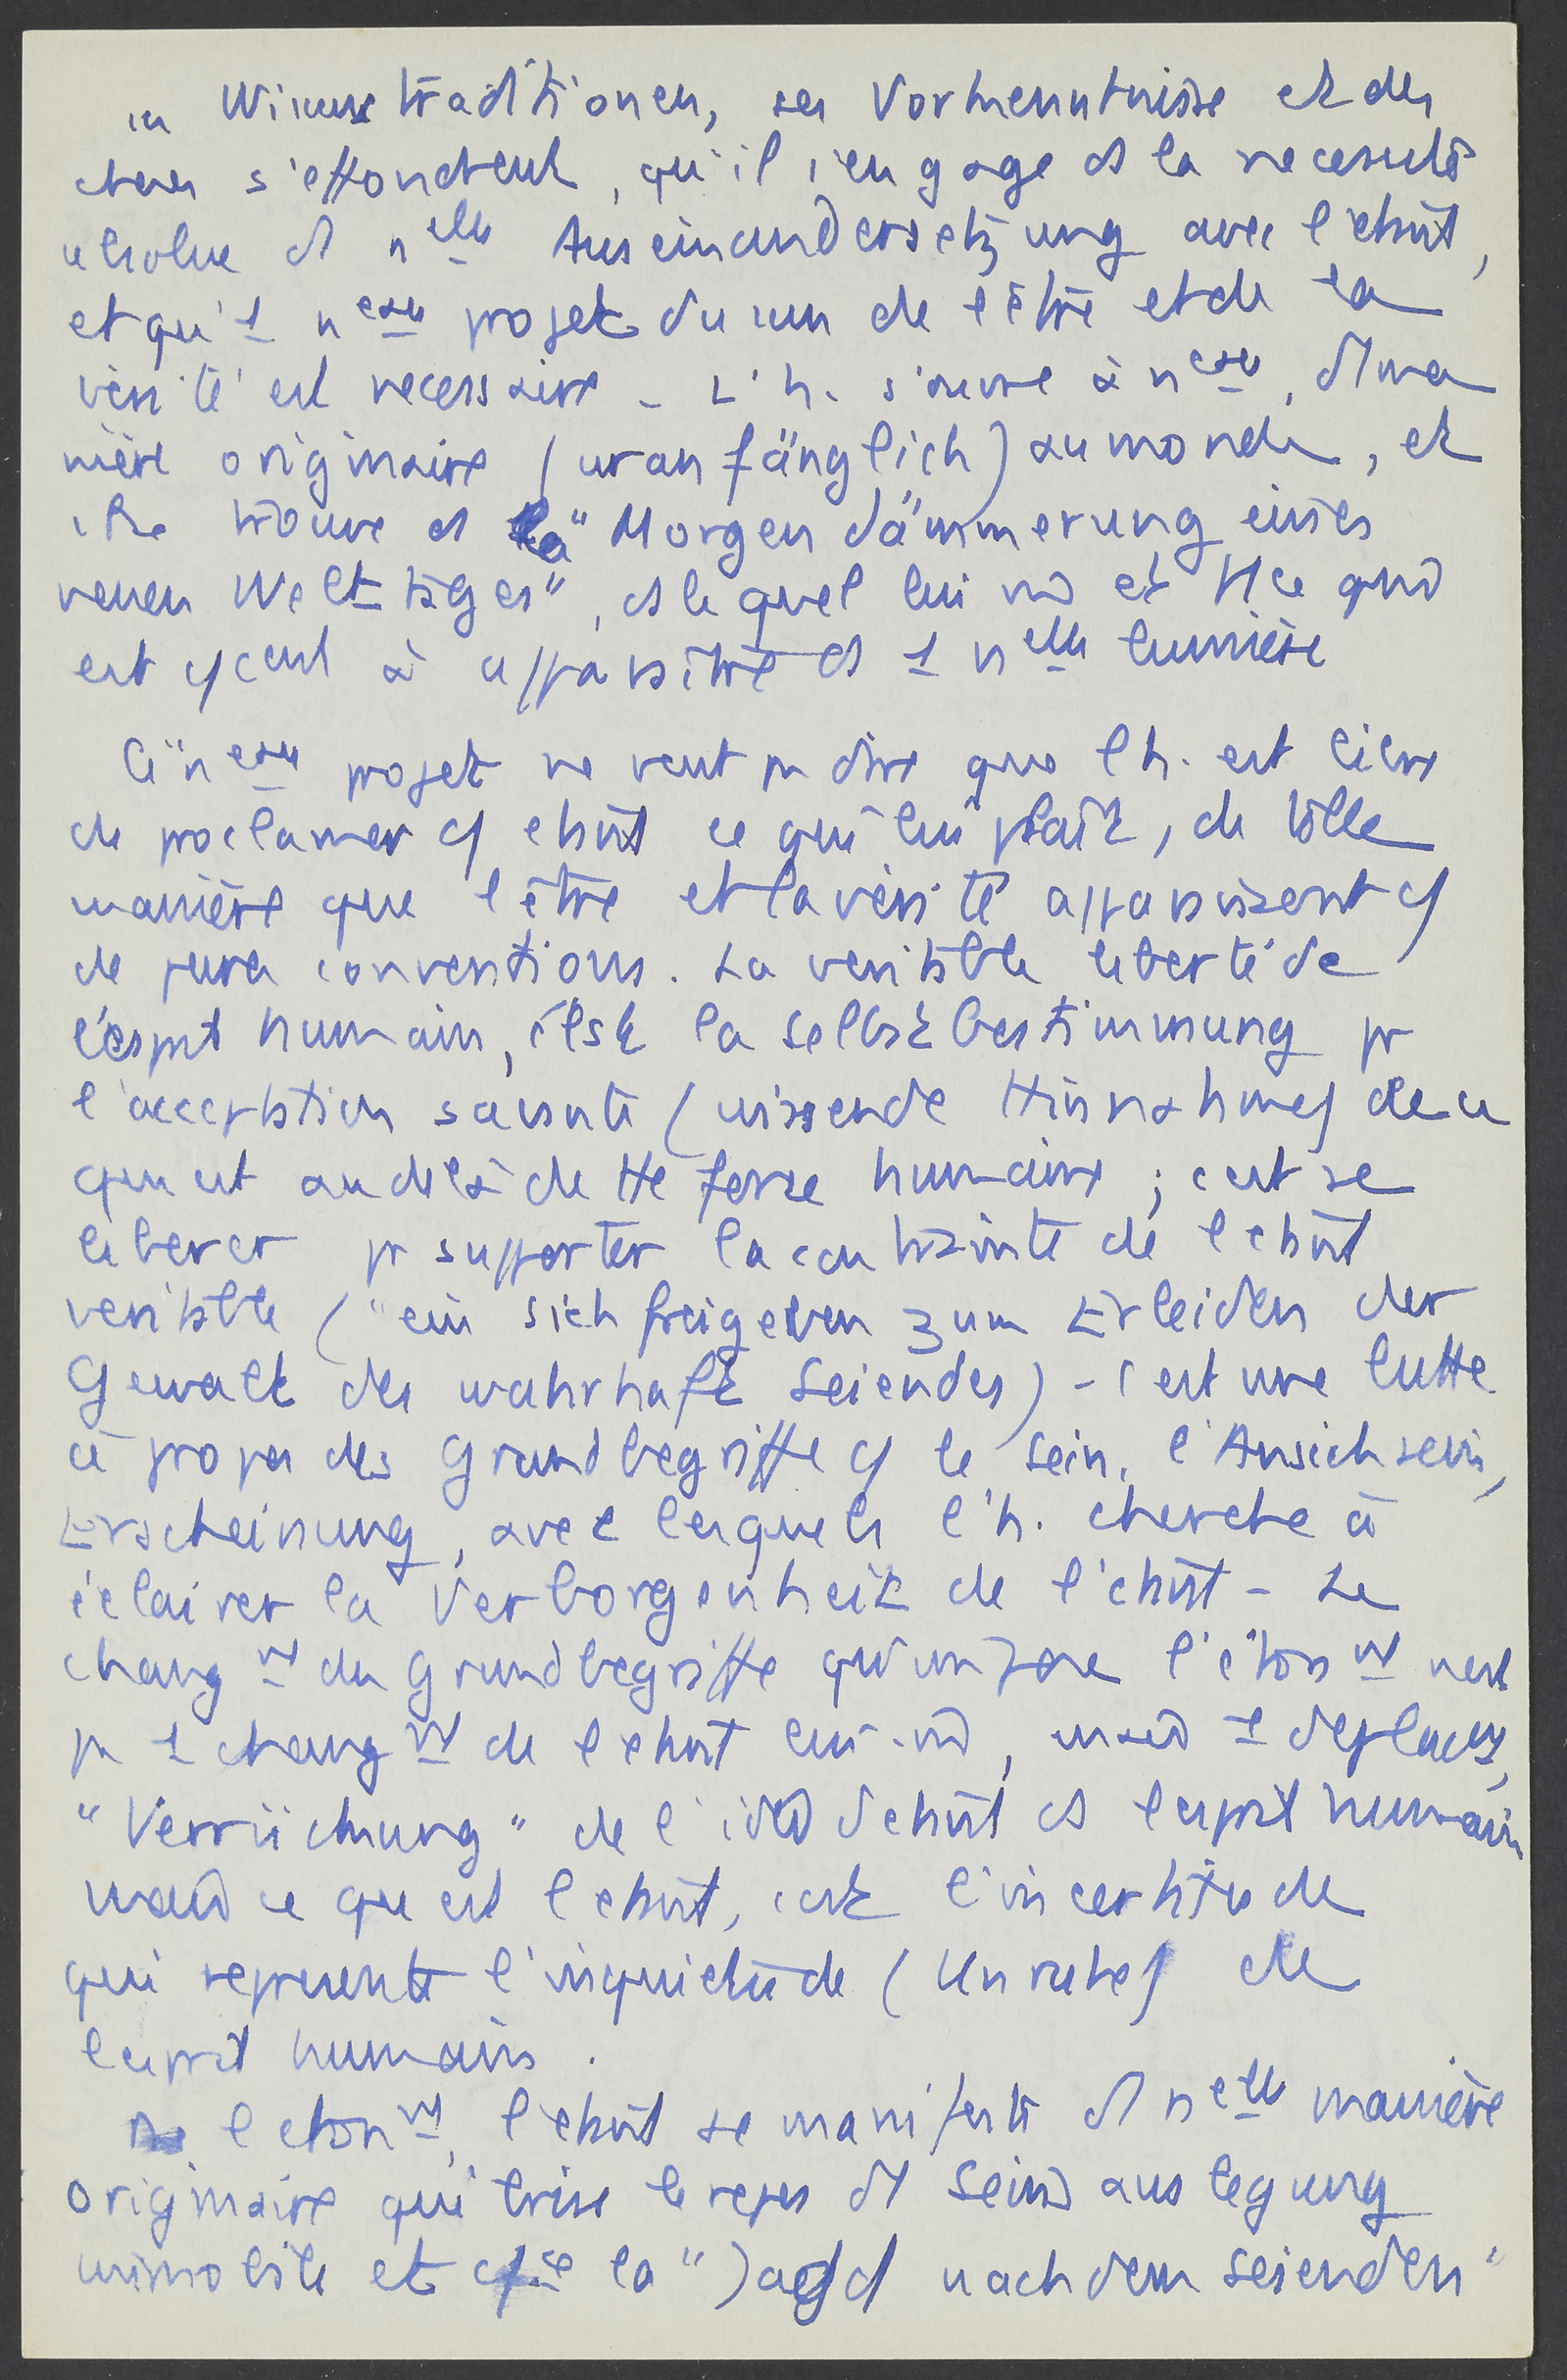 Wissenstraditionen, ses Vorkenntnisse et des
choses s'effondrent, qu'il s'engage ds la necessité
absolue d'1 nelle Auseinandersetzung avec l'étant,
et qu'1 neau projet du sens de l'être et de la
vérité est necessaire - L'h. s'ouvre à neau, d'1 ma
nière originaire (uranfänglich) au monde, et
se trouve ds la "Morgendämmerung eines
neuen Welttages", ds lequel lui mê et tt ce qui
est ccent à apparaître ds 1 nelle lumière
Ce "neau projet ne veut pas dire que l'h. est libre
de proclamer c/ étant ce qui lui plaît, de telle
manière que l'être et la vérité apparaissent c/
de pures conventions. La veritable liberté de
l'esprit humain, c'est la Selbstbestimmung pr
l'acceptation savante (wissende Hinnahme) de ce
qui est au delà de tte force humaine ; c'est se
liberer pr supporter la contrainte de l'étant
veritable ("ein sich freigeben zum Erleiden der
Gewalt des wahrhaft Seiendes) - c'est une lutte
à propos des Grundbegriffe c/ le Sein, l'Ansichsein,
Erscheinung, avec lesquels l'h. cherche à
éclairer la Verborgenheit de l'étant - Le
changmt des Grundbegriffe qu'impose l'étonmt n'est
pas 1 changmt de l'étant lui-mê, mais 1 deplacmt,
"Verrückung" de l'idée d'étant ds l'esprit humain
mais ce qu'est l'étant, c'est l'incertitude
qui represente l'inquietude (Unruhe) de
l'esprit humain.
l'etonmt, l'étant se manifeste d'1 nelle manière
originaire qui brise le repos d'1 Seinsauslegung
immobile et la "Jagd nach dem Seienden"